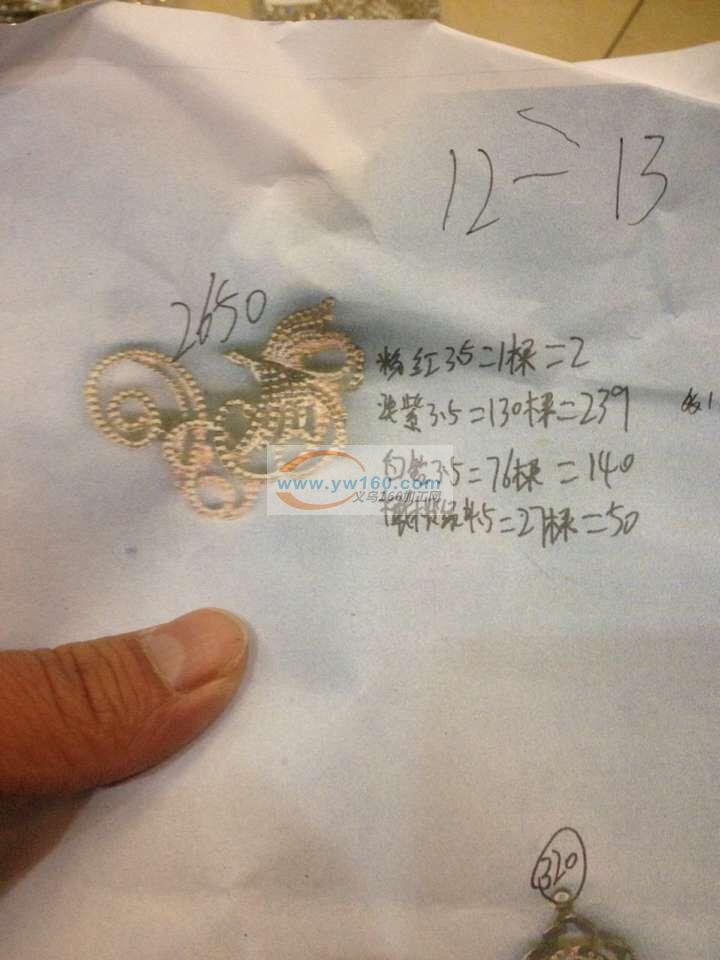 12 — 13
2650
粉红3.5=1棵=2
紫3.5=130棵=239
白钻3.5=76棵=140
3.5=27棵=50
www.yw160.com
义乌260加工网
320